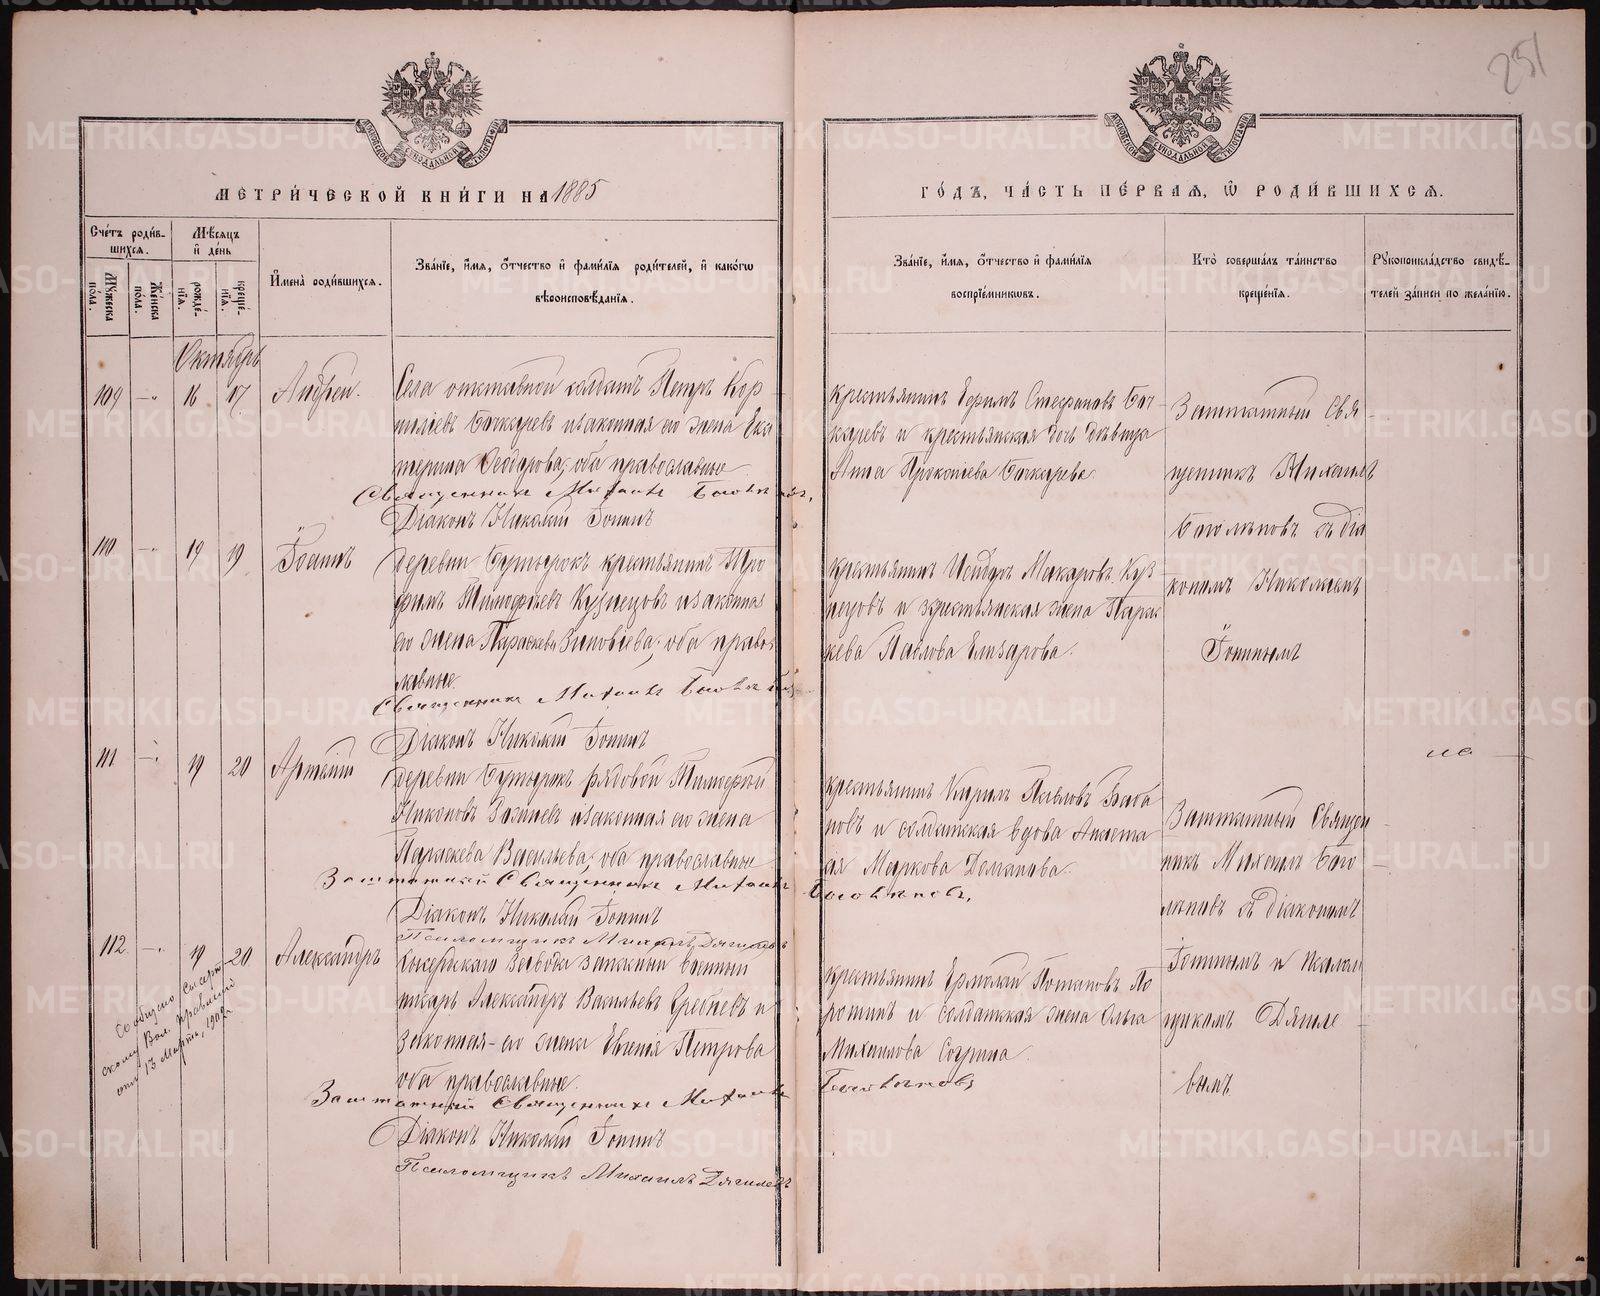 251
МЕТРИ́ЧЕСКОЙ КНИ́ГИ НА 1885
ГО́ДЪ, ЧА́СТЬ ПЕ́РВАЯ, Ѿ РОДИ́ВШИХСѦ.
Сче́тъ роди́в-
шихсѧ.
Мѣ́сяцъ
и҆ де́нь
Му́жеска
по́ла.
Же́нска
по́ла.
рожде́-
нїѧ.
креще́-
нїѧ.
И҆мена̀ роди́вшихсѧ.
Зва́нїе, и҆́мѧ, ѻ҆́тчество и҆ фами́лїѧ роди́телей, и҆ како́гѡ
вѣроисповѣ́данїѧ.
Зва́нїе, и҆́мѧ, ѻ҆́тчество и҆ фами́лїѧ
воспрїе́мникѡвъ.
Кто̀ соверша́лъ та́инство
креще́нїѧ.
Рꙋкоприкла́дство свидѣ́-
телей за́писи по жела́нїю.
Октябрь
109 — 16 17 Андрей.
Села отставной солдатъ Петръ Кор-
ниліевъ Бочкаревъ и законная его жена Ека
терина Ѳеодорова, оба православные
Священникъ Михаилъ
Діаконъ Николай Топинъ
крестьянинъ Ефимъ Стефановъ Боч-
каревъ и крестьянская дочь дѣвица
Анна Прокопьева Бочкарева.
Заштатный Свя-
щенникъ Михаилъ
съ діа
кономъ Николаемъ
Топинымъ
110 — 19 19 Іоаннъ
деревни Бутырокъ крестьянинъ Тро
фимъ Тимофѣевъ Кузнецовъ и законная
его жена Параскева Зиновьева, оба правос
лавные.
Священникъ Михаилъ
Діаконъ Николай Топинъ
крестьянинъ Исидоръ Макаровъ Куз
нецовъ и крестьянская жена Парас
кева Павлова Елизарова.
111 — 19 20 Артемій
деревни Бутырокъ рядовой Тимофей
Никоновъ и законная его жена
Параскева Васильева, оба православные
Заштатный Священникъ Михаилъ
Діаконъ Николай Топинъ
Псаломщикъ Михаилъ Дягилевъ
крестьянинъ Кирилъ Павловъ
новъ и солдатская вдова Анаста
сія Маркова
Заштатный Священ
никъ Михаилъ
съ діакономъ
Топинымъ и Псалом
щикомъ Дягиле-
вымъ.
112 — 19 20 Александръ
Завода запасный военный
писарь Александръ Васильевъ Гребневъ и
законная его жена Евгенія Петрова
оба православные.
Заштатный Священникъ Михаилъ
Діаконъ Николай Топинъ
Псаломщикъ Михаилъ Дягилевъ
крестьянинъ Ермолай Потаповъ По
ротинъ и солдатская жена Ольга
Михаилова
Сообщено Сысерт
скому Вол. правленію
отъ 13 Марта, 1902 г.
METRIKI.GASO-URAL.RU